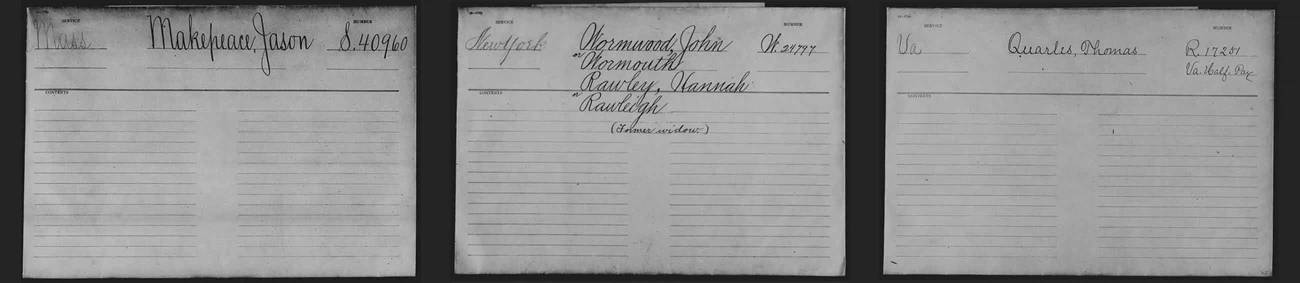 SERVICE
NUMBER
Mass
Makepeace, Jason
S. 40960
CONTENTS
SERVICE
NUMBER
New York
Wormwood, John
W. 24797
or Wormouth
Rawley, Hannah
or Rawleigh
(Former widow)
CONTENTS
SERVICE
NUMBER
Va
Quarles, Thomas
R. 17251
Va. Half Pay
CONTENTS